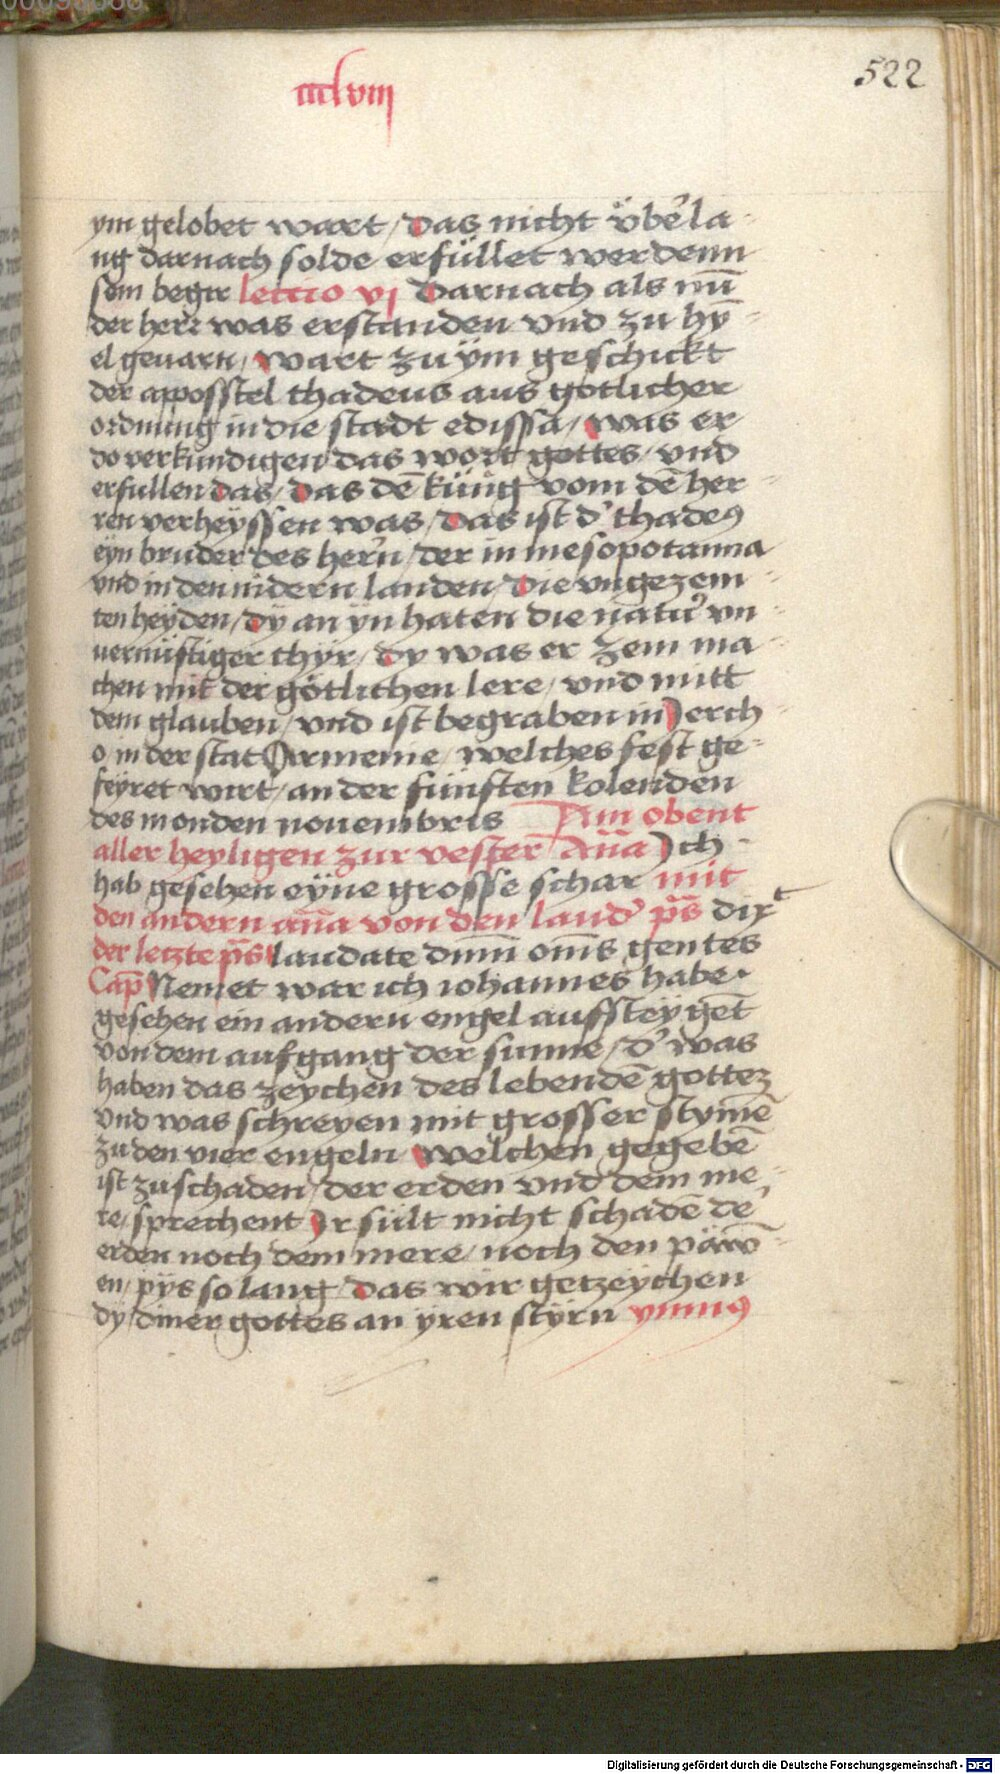 cclviii
522
ym gelobet wart / das nicht vͤbe̕ la-
ng darnach solde erfüllet werdenn
sein begir lectio vj Darnach als nū
der herr was erstanden vnd zu hȳ-
el geuarn / wart zu ÿm geschickt
der aposstel thadeus aus gotlicher
ordnung in die stadt edissa / was er
do verkundigen das wort gottes / vnd
erfullen das / das dē küng vom dē her-
ren verheÿssen was / das ist d̕ thadeꝰ
eÿn bruder des herꝛn / der in mesopotamia
vnd in den nidern landen / die vngezem-
ten heÿden / dÿ an ÿn haten die natur̕ vn-
uernüftiger thÿr / dy was er zem ma-
chen mit der götlichen lere / vnd mitt
dem glauben / vnd ist begraben in Jerch-
o in der stat Armenie / welches fest ge-
feÿret wirt / an der fünften kolenden
des monden nouembris Am obent
aller heyligen zur vesper Ān̄a Jch
hab gesehen eÿne grosse schar mit
den andern ān̄a von den laud̕ p̄s dixᵗ
der letzte p̄s laudate dn̄m om̄s gentes
Cap̄ Nemet war ich iohannes habe
gesehen ein andern engel aufsteÿgēt
von dem aufgang der sunne / d̕ was
haben das zeychen des lebendē gottez
vnd was schreyen mit grosser stymē
zu den vier engeln / welchen gegebē
ist zu schaden / der erden vnd dem me-
re / sprechent Jr sült nicht schadē de̕
erden noch dem mere / noch den päw̄-
en / pÿs so lang / das wir getzeÿchen
dÿ diner gottes an ÿren stÿrn ymnꝰ
Digitalisierung gefördert durch die Deutsche Forschungsgemeinschaft - DFG